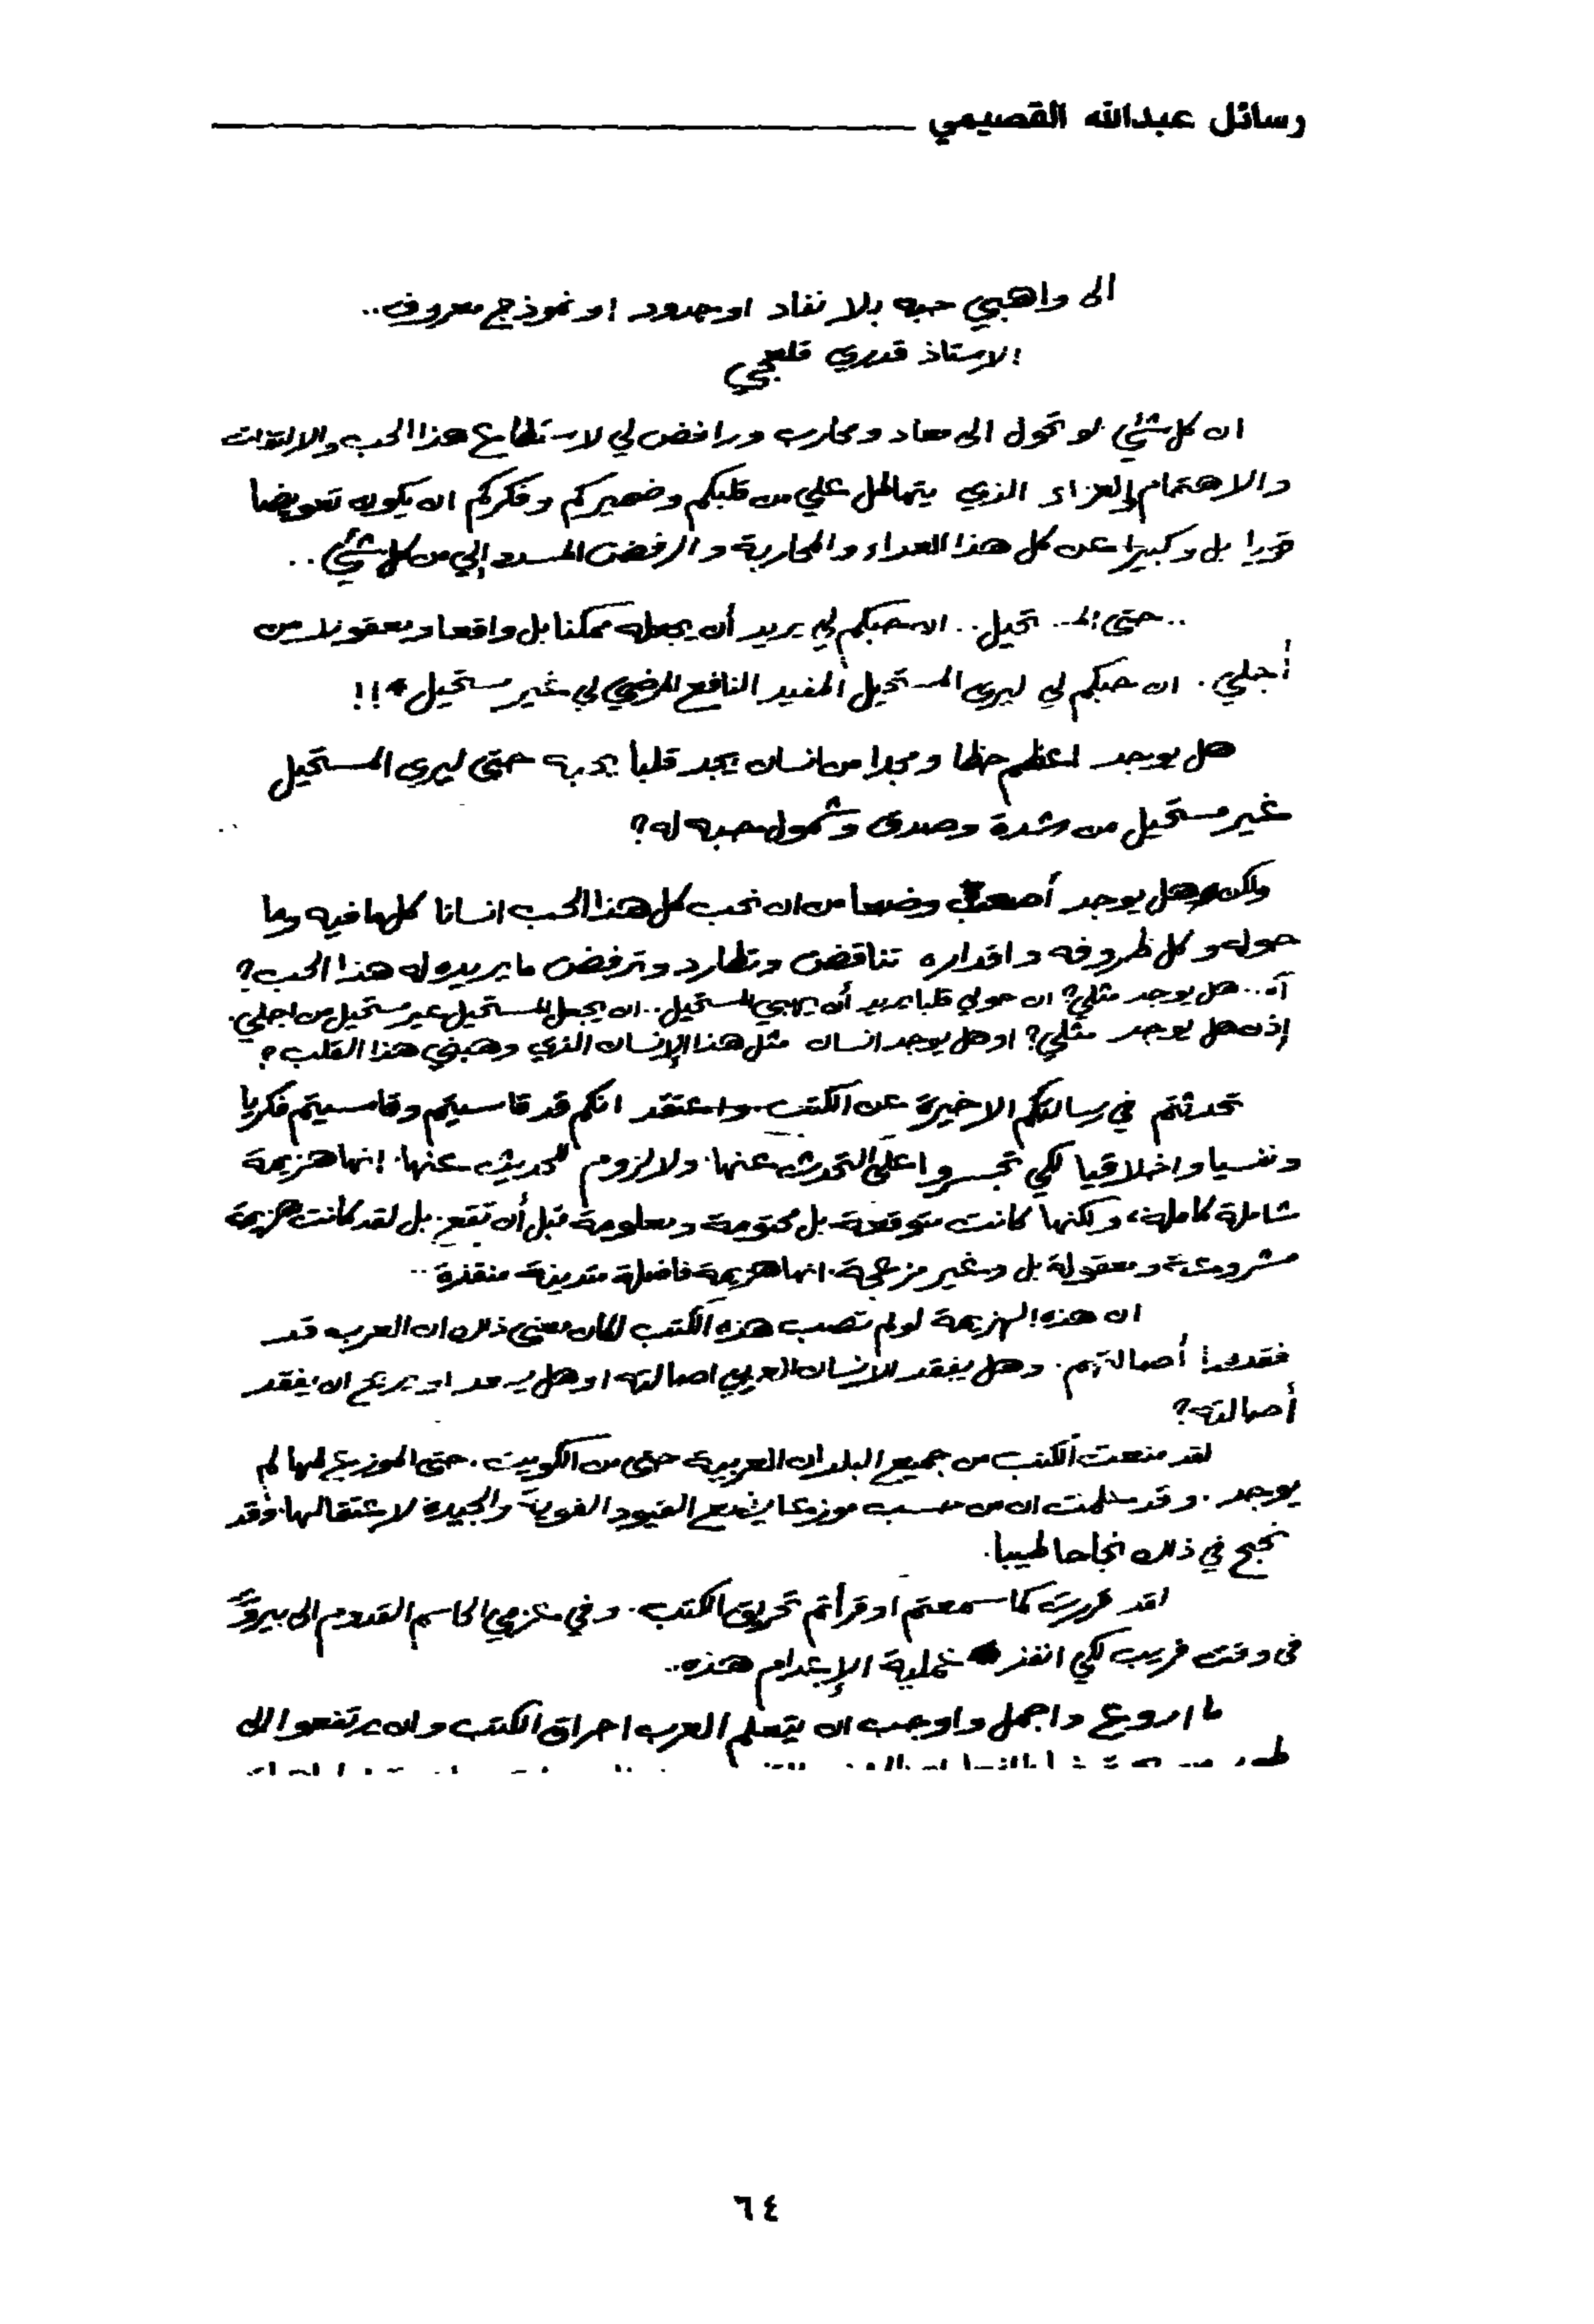 رسائل عبدالله القصيمي
الى واهبي حبه بلا نفاد او حدود او نموذج معروف..
الاستاذ قدري قلعجي
ان كل شئ لو تحول الى معاد ومحارب ورافض لي لاستطاع هذا الحب والالتفات
والاهتمام والعزاء الذي يتهاطل علي من قلبكم وضميركم وفكركم ان يكون تعويضا
قويا بل وكبيرا عن كل هذا العداء والمحاربة والرفض المسدد إلي من كل شئ..
..حتى المستحيل.. ان حبكم لي يريد أن يجعله ممكنا بل واقعا ومعقولا من
أجلي. ان حبكم لي ليرى المستحيل المفيد النافع المرضي لي غير مستحيل!!
هل يوجد اعظم حظا ومجدا من انسان يجد قلبا يحبه حتى ليرى المستحيل
غير مستحيل من شدة وصدق وشمول حبه له؟
ولكن هل يوجد أصعب وضعا من ان تحب كل هذا الحب انسانا كل ما فيه وما
حوله وكل ظروفه واقداره تناقض وتطارد وترفض ما يريده له هذا الحب؟
آه.. هل يوجد مثلي؟ ان حولي قلبا يريد أن يهبني المستحيل.. ان يجعل المستحيل غير مستحيل من اجلي.
إذن هل يوجد مثلي؟ او هل يوجد انسان مثل هذا الإنسان الذي وهبني هذا القلب؟
تحدثتم في رسالتكم الاخيرة عن الكتب. واعتقد انكم قد قاسيتم وقاسيتم فكريا
ونفسيا واخلاقيا لكي تجسروا على التحدث عنها. ولا لزوم للحديث عنها. إنها هزيمة
شاملة كاملة، ولكنها كانت متوقعة بل محتومة ومعلومة قبل أن تقع. بل لقد كانت هزيمة
مشروعة ومعقولة بل وغير مزعجة. انها هزيمة فاضلة متدينة منقذة..
ان هذه الهزيمة لو لم تصب هذه الكتب لكان معنى ذلك ان العرب قد
فقدوا أصالتهم. وهل يفقد الإنسان العربي اصالته او هل يريد ان يفقد
أصالته؟
لقد منعت الكتب من جميع البلدان العربية حتى من الكويت. حتى الموزع لها لم
يوجد. وقد علمت ان من حسب موزعا يضع القيود القوية والجيدة لاعتقالها. وقد
نجح في ذلك نجاحا طيبا.
لقد قررت كما سمعتم او قرأتم تحريق الكتب. وفي عزمي الحاسم القدوم الى بيروت
فى وقت قريب لكي انفذ عملية الإعدام هذه..
ما اروع واجمل واوجب ان يتعلم العرب احراق الكتب وان يرتفعوا الى
٦٤